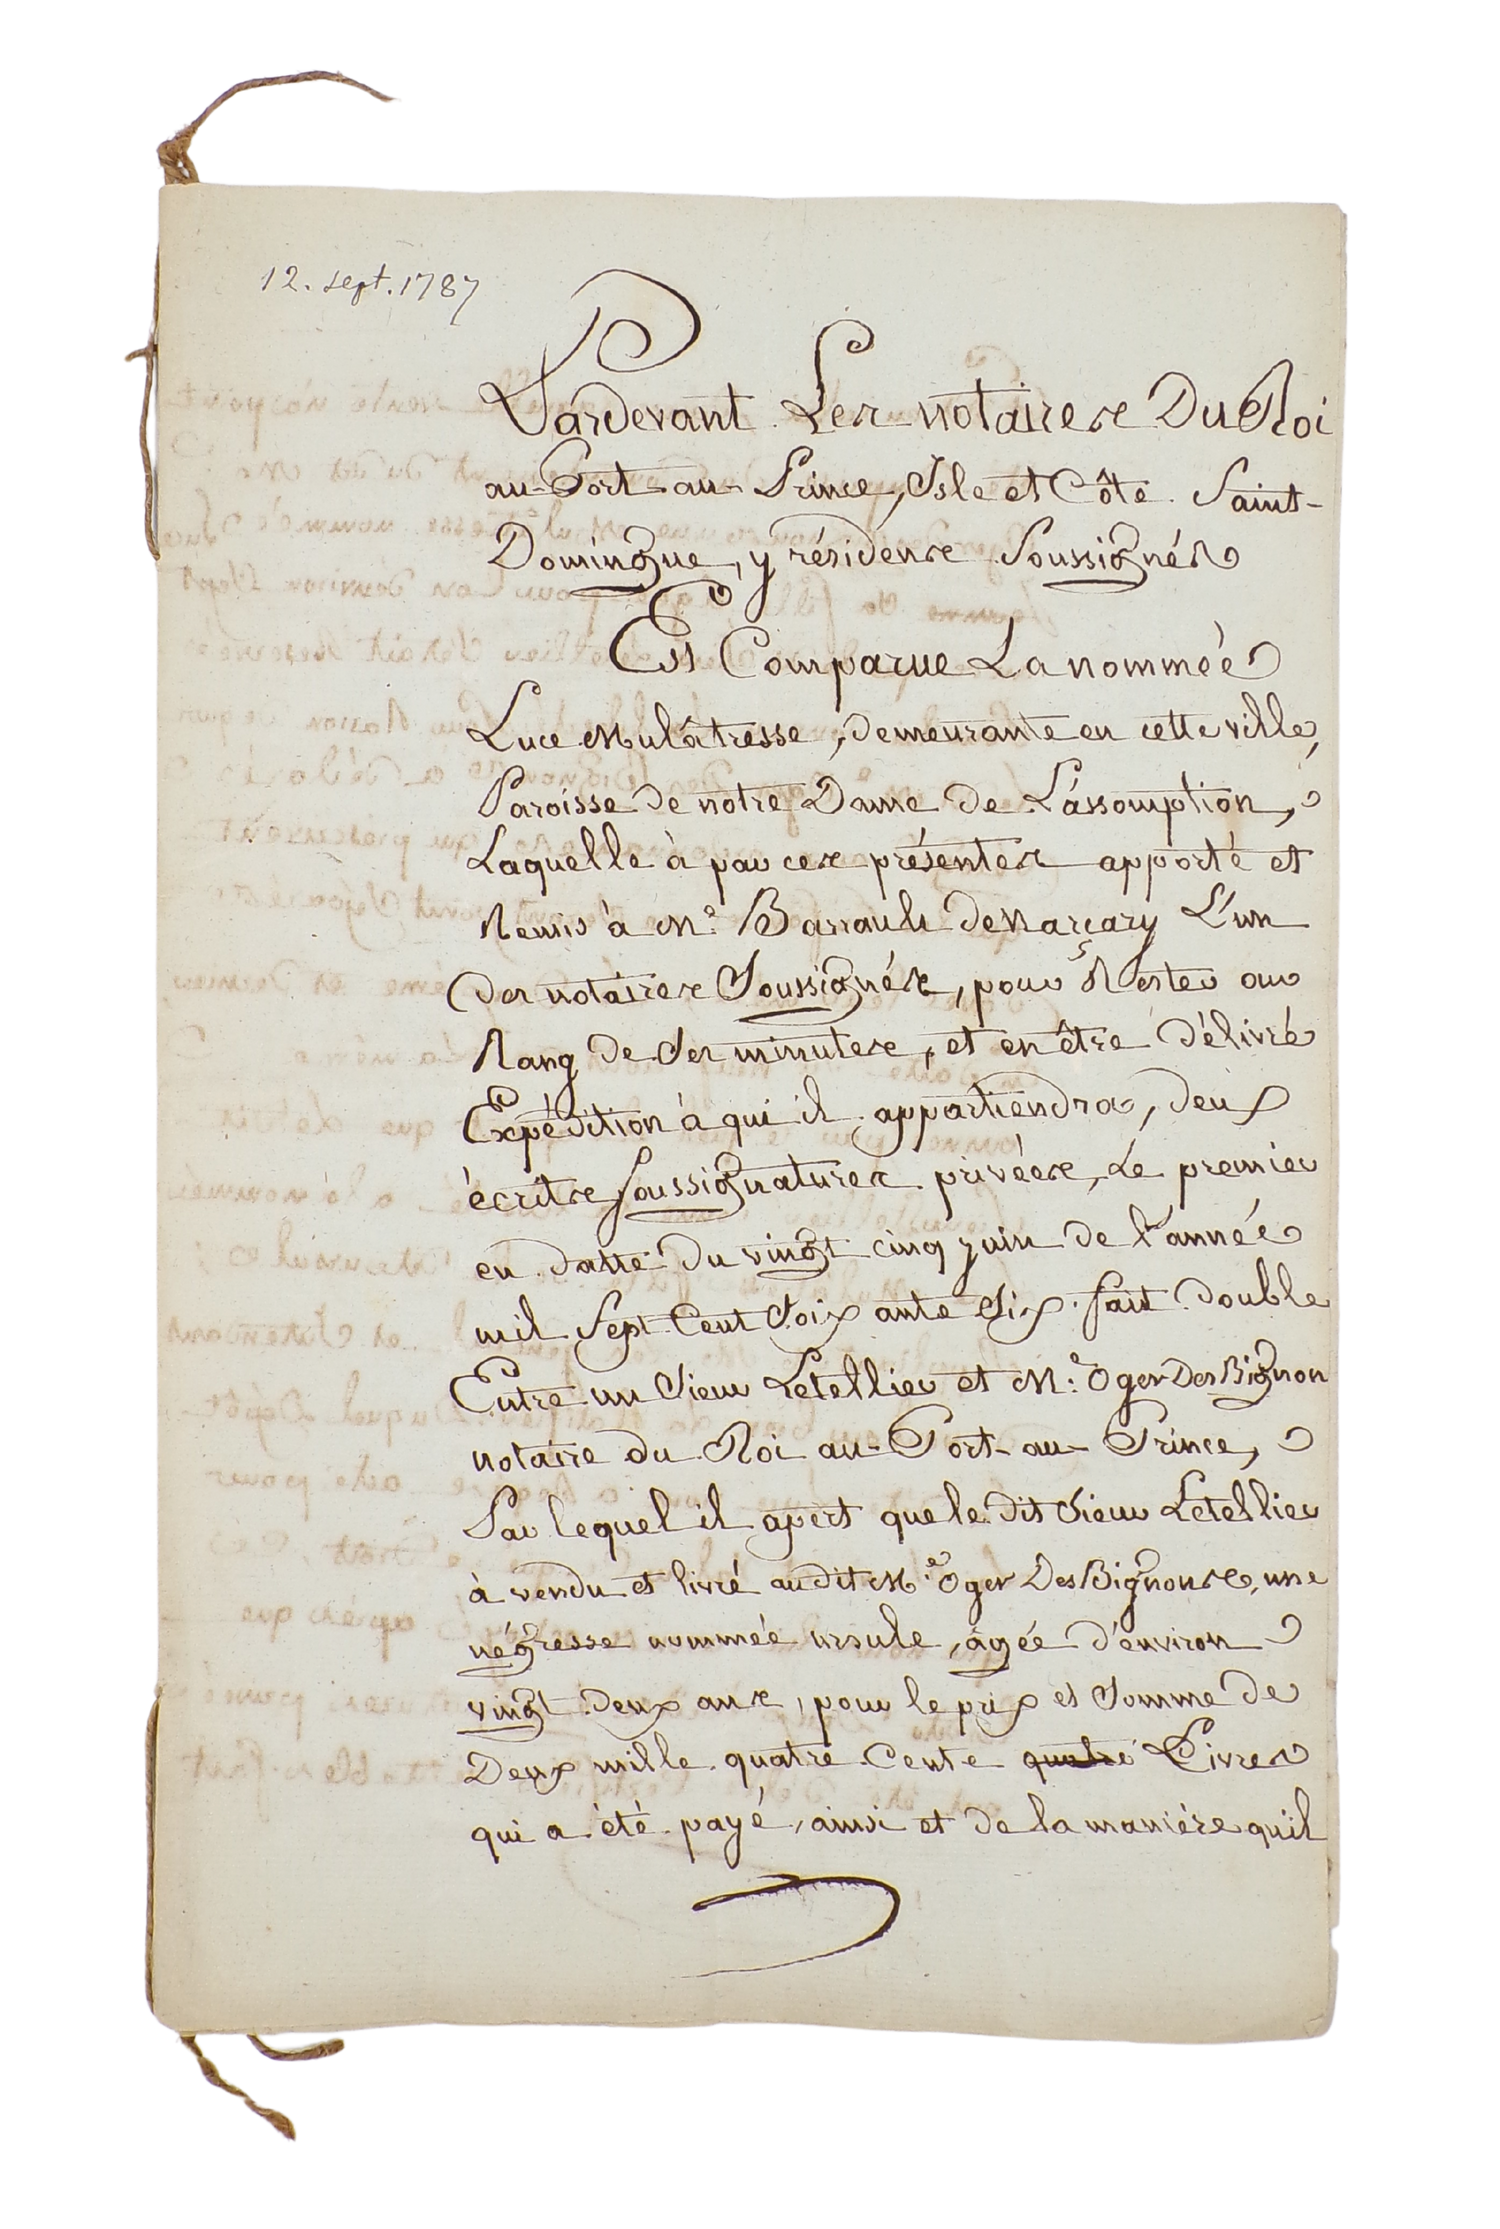 12. sept. 1787
Pardevant Les notaires Du Roi
au-Port-au-Prince, Isle et Côte Saint-
Domingue, y résidens Soussignés
Est Comparue La nommée
Luce Mulâtresse, demeurante en cette ville,
Paroisse de notre Dame de L'assomption,
Laquelle à par ces présentes apporté et
Remis à Me. Barrault deNarçay L'un
des notaires Soussignés, pour Rester au
Rang de Ses minutes, et en être délivré
Expédition à qui il appartiendra, deux
écrits soussignatures privées, Le premier
en datte du vingt cinq juin de l'année
mil Sept Cent Soixante Six fait double
Entre un Sieur Letellier et Me. Oger Des Bignon
notaire du Roi au-Port-au-Prince,
Par lequel il apert que le dit Sieur Letellier
à vendu et livré audit Me. Oger Des Bignons, une
négresse nommée ursule, âgée d'environ
vingt deux ans, pour le prix et Somme de
Deux mille quatre Cents quatre Livres
qui a été payé, ainsi et de la maniére qu'il